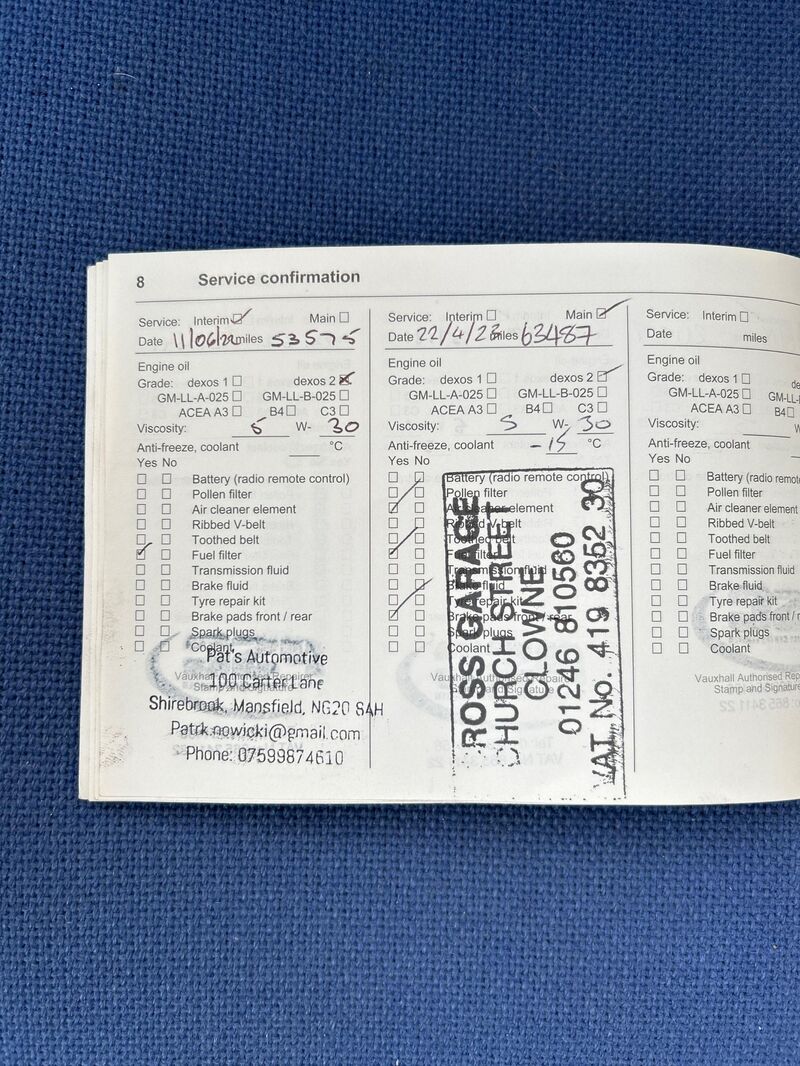 8 Service confirmation
Service: Interim Main
Date 11/06/22 miles 53575
Engine oil
Grade: dexos 1 dexos 2
GM-LL-A-025 GM-LL-B-025
ACEA A3 B4 C3
Viscosity: 5 W- 30
Anti-freeze, coolant °C
Yes No
Battery (radio remote control)
Pollen filter
Air cleaner element
Ribbed V-belt
Toothed belt
Fuel filter
Transmission fluid
Brake fluid
Tyre repair kit
Brake pads front / rear
Spark plugs
Coolant
Vauxhall Authorised Repairer
Stamp and Signature
Pat's Automotive
100 Carter Lane
Shirebrook, Mansfield, NG20 8AH
Patrk.nowicki@gmail.com
Phone: 07599874610
Service: Interim Main
Date 22/4/23 miles 63487
Engine oil
Grade: dexos 1 dexos 2
GM-LL-A-025 GM-LL-B-025
ACEA A3 B4 C3
Viscosity: 5 W- 30
Anti-freeze, coolant -15 °C
Yes No
Battery (radio remote control)
Pollen filter
Air cleaner element
Ribbed V-belt
Toothed belt
Fuel filter
Transmission fluid
Brake fluid
Tyre repair kit
Brake pads front / rear
Spark plugs
Coolant
Vauxhall Authorised Repairer
Stamp and Signature
ROSS GARAGE
CHURCH STREET
CLOWNE
01246 810560
VAT No. 419 8352 30
Service: Interim
Date miles
Engine oil
Grade: dexos 1
GM-LL-A-025
ACEA A3
Viscosity:
Anti-freeze, coolant
Yes No
Battery (radio remote
Pollen filter
Air cleaner element
Ribbed V-belt
Toothed belt
Fuel filter
Transmission fluid
Brake fluid
Tyre repair kit
Brake pads front /
Spark plugs
Coolant
Vauxhall Authorised
Stamp and Signature